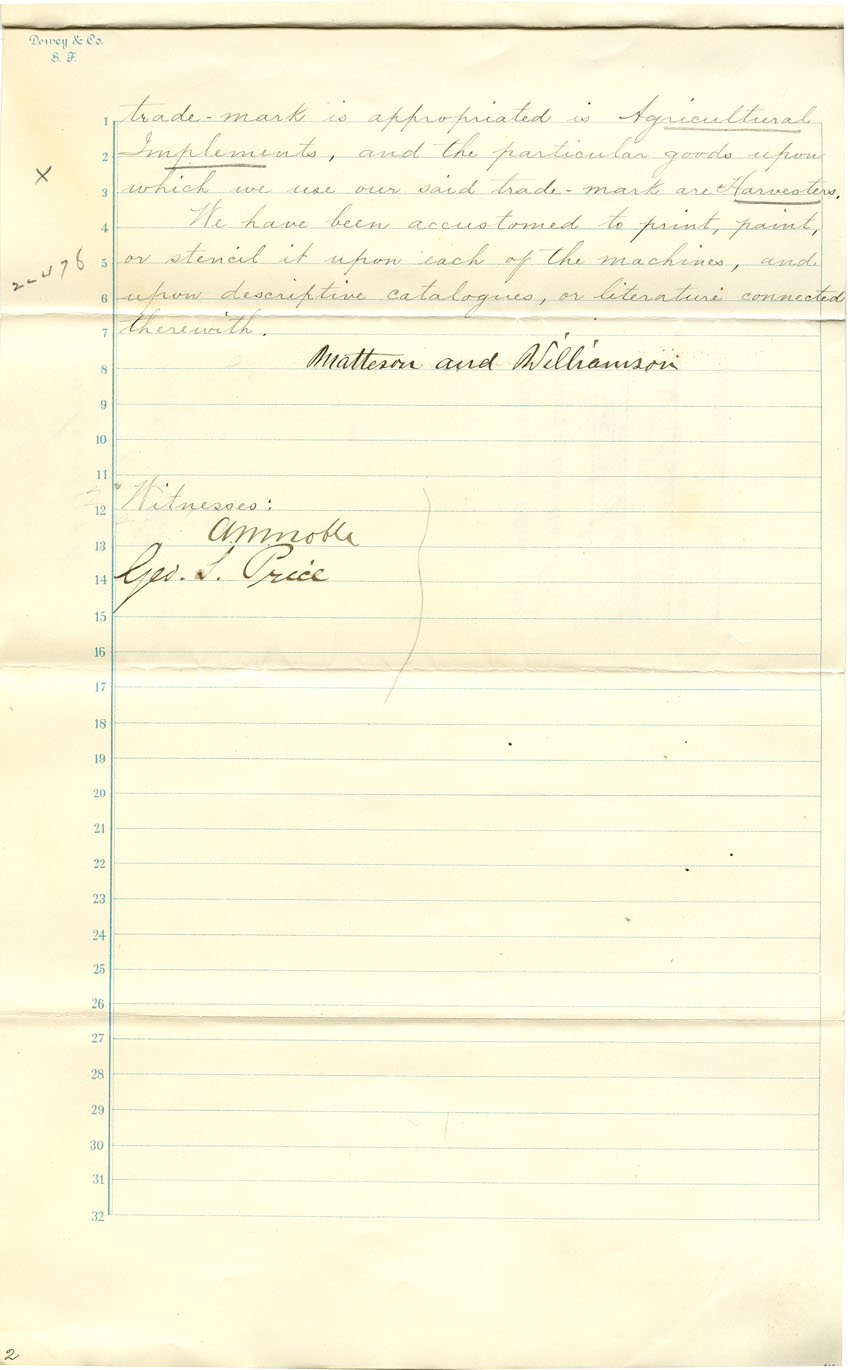 Dewey & Co.
S. F.
1 trade-mark is appropriated is Agricultural
2 Implements, and the particular goods upon
3 which we use our said trade-mark are Harvesters.
4 We have been accustomed to print, paint,
5 or stencil it upon each of the machines, and
6 upon descriptive catalogues, or literature connected
7 therewith.
8 Matteson and Williamson
9
10
11
12 Witnesses:
13
14 Geo. S. Price
15
16
17
18
19
20
21
22
23
24
25
26
27
28
29
30
31
32
2